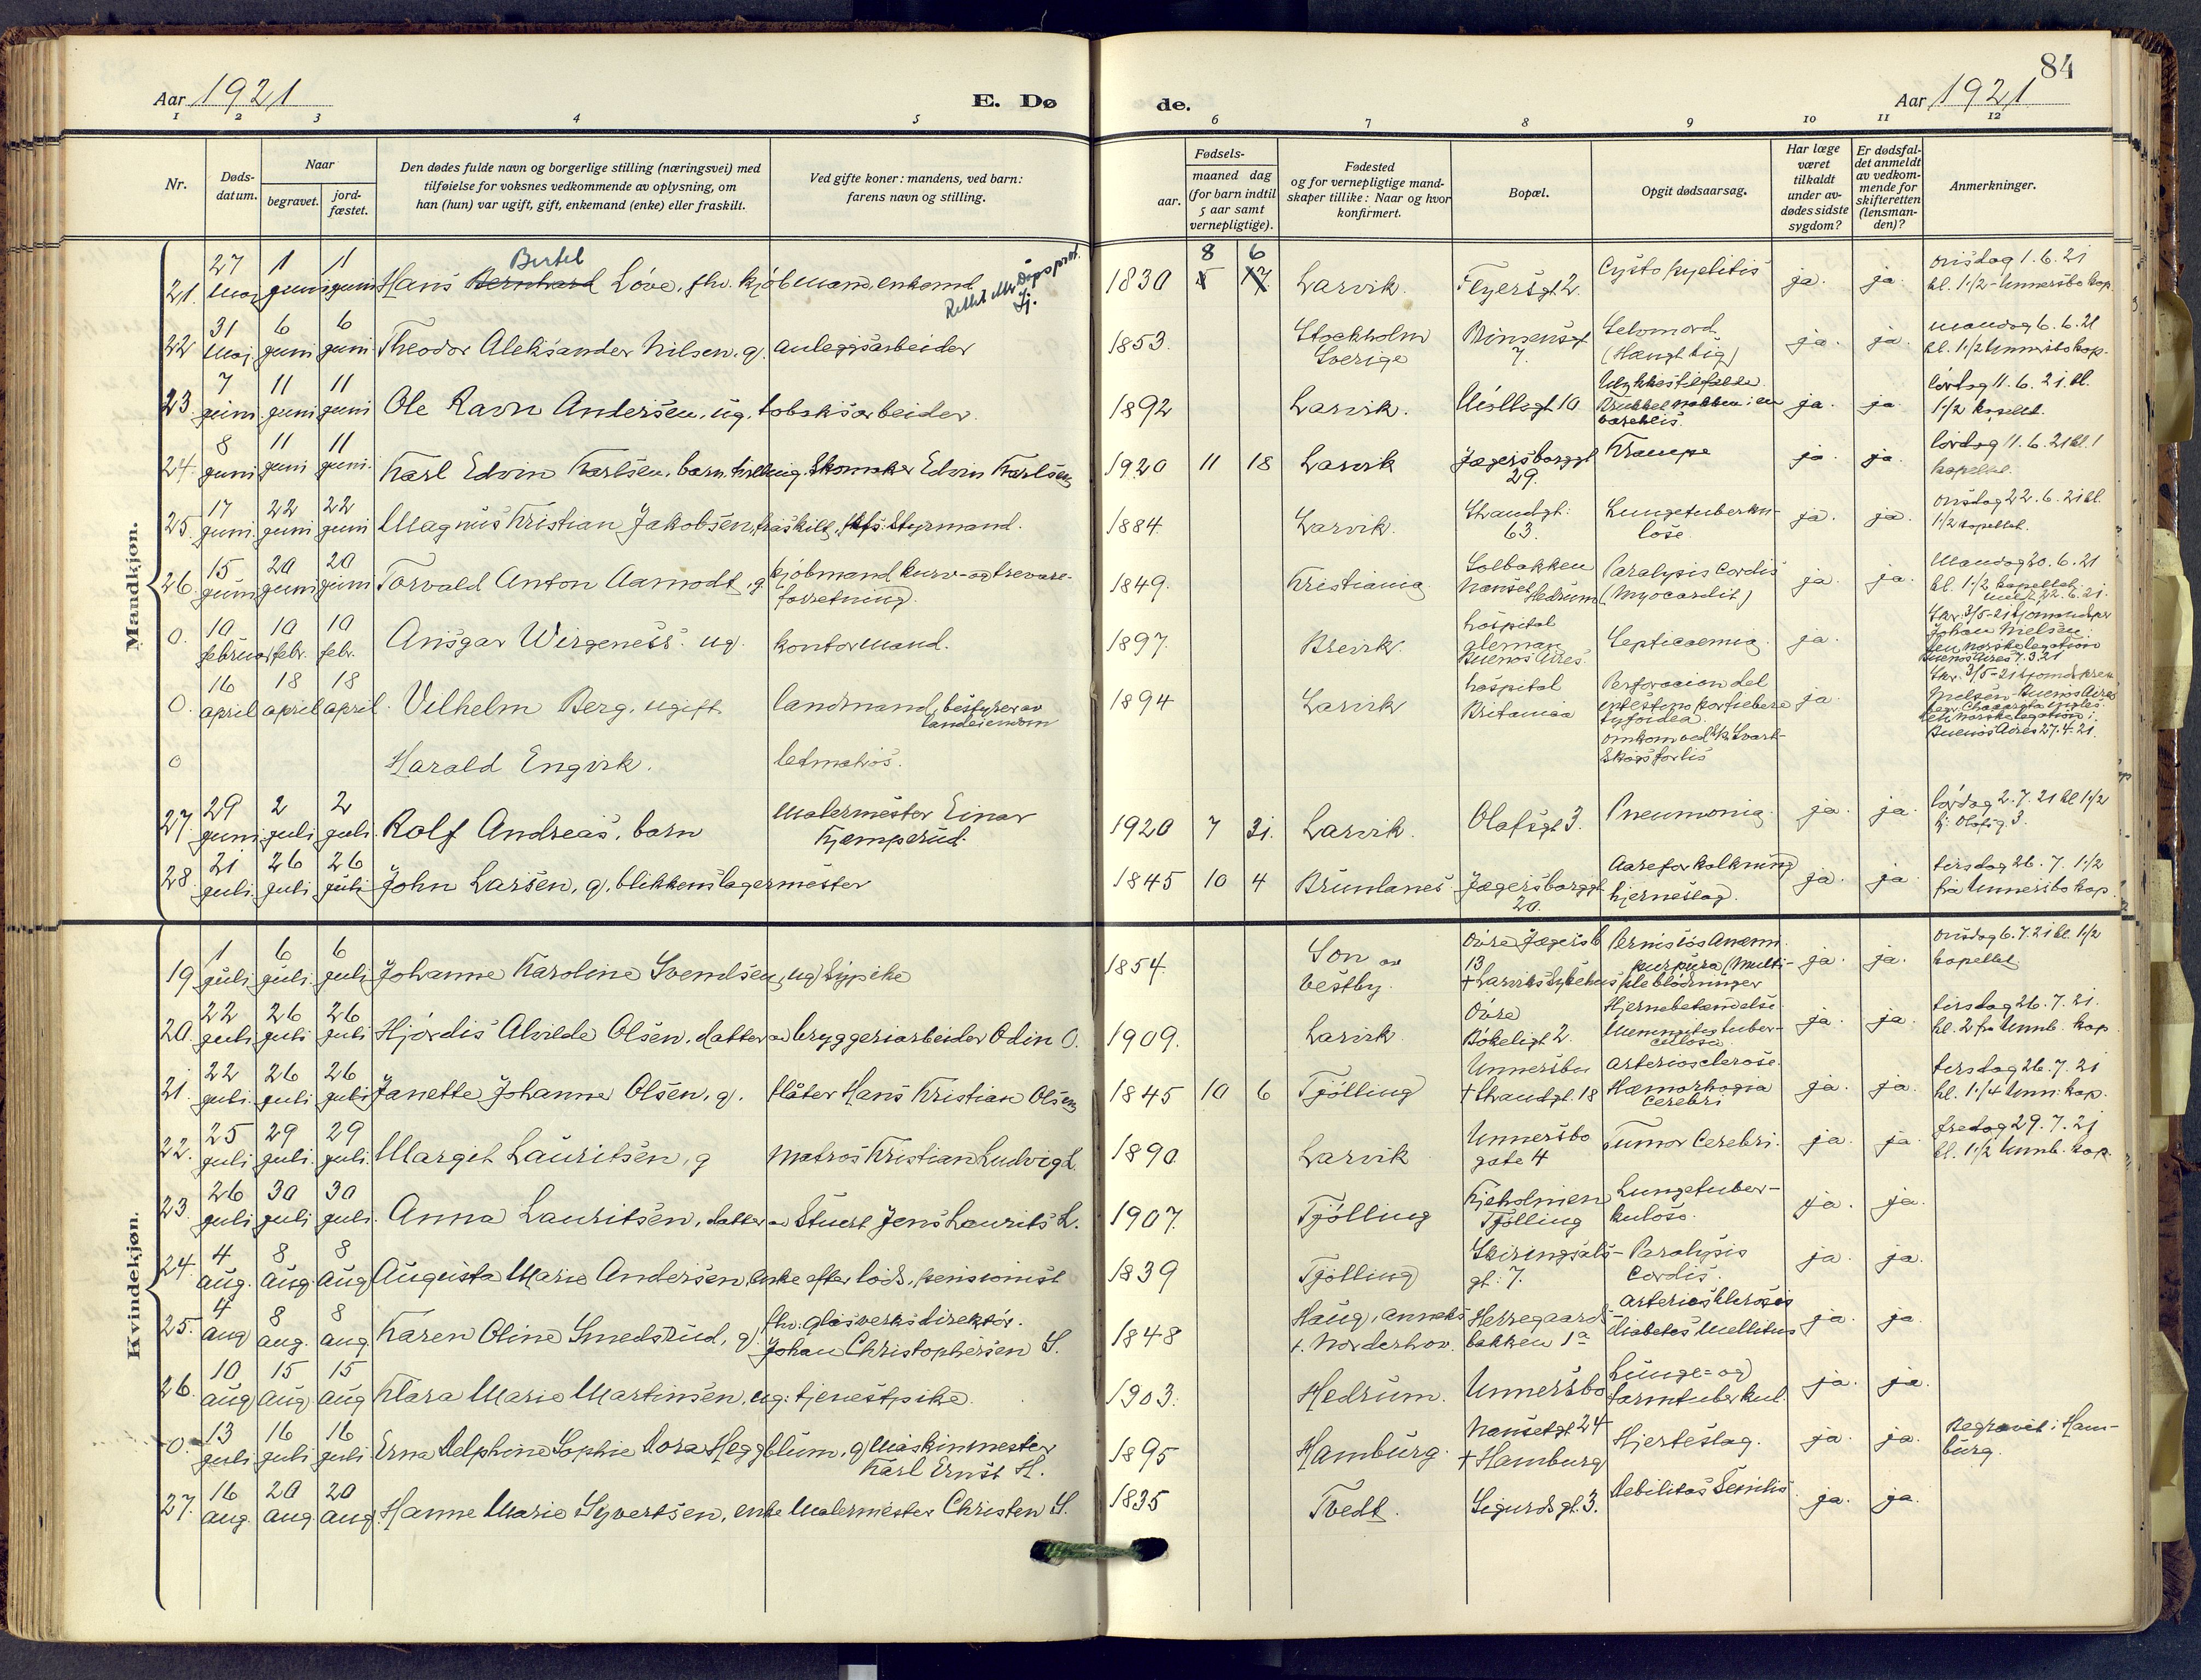 84
Aar 1921 E. Dø de. Aar 1921
1 2 3 4 5 6 7 8 9 10 11 12
Nr.
Døds-
datum.
Naar
begravet.
jord-
fæstet.
Den dødes fulde navn og borgerlige stilling (næringsvei) med
tilføielse for voksnes vedkommende av oplysning, om
han (hun) var ugift, gift, enkemand (enke) eller fraskilt.
Ved gifte koner: mandens, ved barn:
farens navn og stilling.
aar.
Fødsels-
maaned dag
(for barn indtil
5 aar samt
vernepligtige).
Fødested
og for vernepligtige mand-
skaper tillike: Naar og hvor
konfirmert.
Bopæl.
Opgit dødsaarsag.
Har læge
været
tilkaldt
under av-
dødes sidste
sygdom?
Er dødsfal-
det anmeldt
av vedkom-
mende for
skifteretten
(lensman-
den)?
Anmerkninger.
Mandkjøn.
21. 27 Mai 11 juni 11 juni Hans Bernhard Bertel Løve, fhv. kjøbmand, enkemd. 1830 8 6 Larvik. Feyersgt. 2. Cysto pyelitis ja. ja. onsdag 1.6.21
kl. 1 1/2 - Unnersbo kap.
22 31 Mai. 6 juni 6 juni Theodor Aleksander Nilsen, g. anleggsarbeider 1853. Stockholm Sverige 7. Selvmord (Hængt sig) ja. ja. mandag 6.6.21
kl. 1 1/2 Unnersbo kap.
23. 7 juni. 11 juni 11 juni Ole Ravn Andersen, ug. tobaksarbeider. 1892 Larvik. 10 Ulykkestilfælde. ja. ja lørdag 11.6.21. kl.
1 1/2 kapellet.
24. 8 juni 11 juni 11 juni. Karl Edvin Karlsen, barn, tvilling. Skomaker Edvin Karlsen 1920 11 18 Larvik Jægersborggt 29. Krampe ja. ja. lørdag 11.6.21 kl. 1
kapellet.
25. 17 juni. 22 juni 22 juni Magnus Kristian Jakobsen, fraskilt, Styrmand. 1884. Larvik. Strandgt. 63. Lungetuberku-
lose ja. ja. onsdag 22.6.21 kl.
1 1/2 kapellet.
26. 15 juni 20 juni 20 juni Torvald Anton Aamodt, g. kjøbmand kurv- og trevare-
forretning). 1849. Kristiania Solbakken Nanset, Hedrum Paralysis Cordis
(Myocardit) ja. ja. Mandag 20.6.21
kl. 1 1/2 kapellet.
0. 10 februar 10 febr. 10 febr. Ansgar Wirgeness. ug. kontormand. 1897. Brevik. hospital aleman Buenos Aires. Septicaemia. ja. Skr. 3/5-21
Johan Nielsen.
den norske legation
Buenos Aires 7.3.21
0. 16 april 18 april 18 april. Vilhelm Berg, ugift landmand, bestyrer av
landeiendom 1894 Larvik hospital Britanica Perforacion del
intestino por fiebere
tyfoidea. ja. Skr. 3/5-21
Nielsen Buenos Aires
den norske legation i
Buenos Aires 27.4.21.
0 Harald Engvik. letmatros. omkom ved
forlis
27. 29 juni. 2 juli 2 juli. Rolf Andreas, barn Malermester Einar
Kjemperud. 1920 7 31. Larvik. Olafsgt 3. Pneumonia. ja. ja. lørdag 2.7.21 kl 1 1/2
Olafsg. 3.
28. 21 juli. 26 juli 26 juli John Larsen, g, blikkenslagermester 1845 10 4 Brunlanes Jægersborggt 20. Aareforkalkning
hjerneslag. ja. ja tirsdag 26.7. 1 1/2
fra Unnersbo kap.
Kvindekjøn.
19 1 juli. 6 juli. 6 juli Johanne Karoline Svendsen, ug) sypike 1854. Son av
Vestby. Øvre Jægersb.
13
+ Larviks Sykehus Pernisiøs Anæmi.
purpura (Multi-
ple blødninger ja. ja. onsdag 6.7.21 kl. 1 1/2
kapellet.
20. 22 juli 26 juli 26 juli Hjørdis Alvilde Olsen, datter av bryggeriarbeider Odin O. 1909. Larvik. Øvre
Bøkeligt 2. Hjernebetændelse
Meningites tuber-
culosa ja. ja. tirsdag 26.7.21.
kl. 2 fra Unnb. kap.
21. 22 juli. 26 juli 26 juli Janette Johanne Olsen, g. flåter Hans Kristian Olsen 1845 10 6 Tjølling Unnersbo
+ Strandgt. 18 arteriosclerose.
Hæmorhagia
cerebri ja. ja. tirsdag 26.7.21
kl. 1 1/4 Unn. kap.
22. 25 juli 29 juli. 29 juli. Margit Lauritsen, g Matros Kristian Ludvig L. 1890. Larvik Unnersbo
gate 4 Tumor Cerebri. ja. ja. fredag 29.7.21
kl. 1 1/2 Unnb. kap.
23. 26 juli 30 juli 30 juli. Anna Lauritsen, datter av Stuert Jens Laurits L. 1907. Tjølling Kjeholmen
Tjølling Lungetuber-
kulose. ja. ja.
24. 4 aug. 8 aug. 8 aug Augusta Marie Andersen, enke efter lods, pensionist 1839 Tjølling Skiringsals-
gt. 7. Paralysis
Cordis. ja. ja.
25. 4 aug 8 aug. 8 aug Karen Oline Smedsrud, g) fhv. glasverksdirektør.
Johan Christophersen S. 1848 Haug, anneks
t. Norderhov. Herregaards-
bakken 1a arteriosklerosis
diabetes mellitus ja. ja.
26. 10 aug 15 aug 15 aug Klara Marie Martinsen, ug: tjenestpike. 1903. Hedrum. Unnersbo Lunge- og
tarmtuberkul. ja. ja.
0. 13 juli 16 juli 16 juli Erna Delphine Sophie Dora Heggblum, g) Maskinmester
Karl Ernst H. 1895 Hamburg. Nansetgt 24
+ Hamburg Hjerteslag. ja. ja. Begravet i Ham-
burg.
27. 16 aug. 20 aug. 20 aug. Hanne Marie Syvertsen, enke Malermester Christen S. 1835 Tvedt. Sigurdsgt. 3. Debilitas Senilis ja. ja.